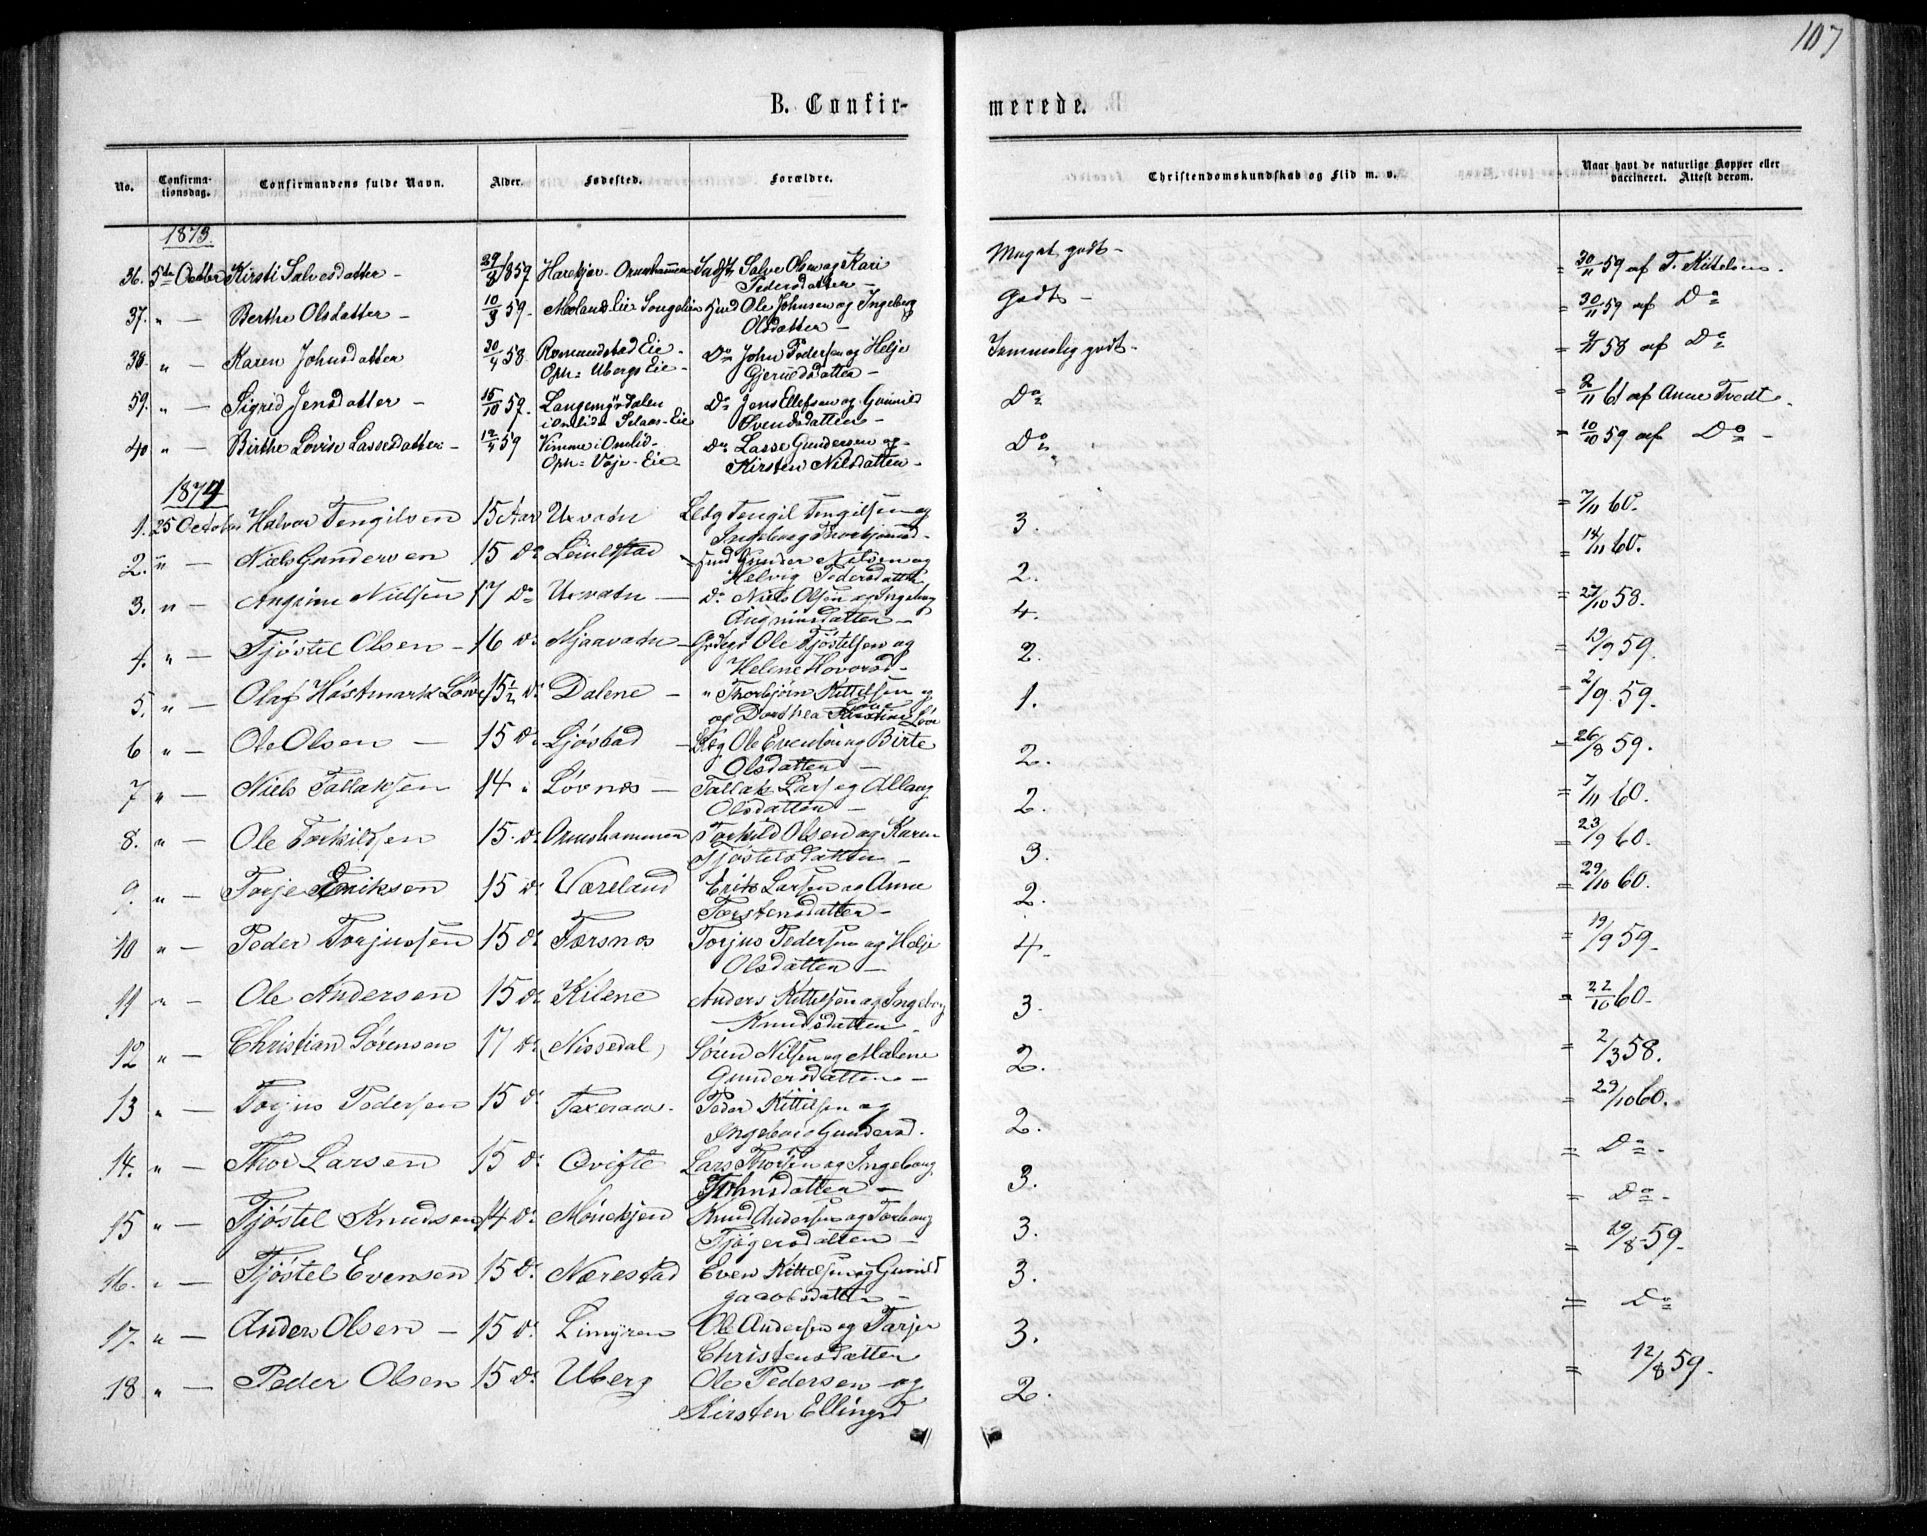 107
B. Confirmerede.
No. Confirmationsdag. Confirmandens fulde Navn. Alder. Fødested. Forældre. Christendomskundskab og Flid m. v. Naar havt de naturlige Kopper eller vaccineret. Attest derom.
1873.
36. 5te October Kirsti Salvesdatter - 29/8 1859 Salve Olsen og Kari Meget godt - = 30/11 59 af T. Kittelsen.
Pedersdatter -
37. " - Berthe Olsdatter - 10/3 59. Molands Eie Songelien Hmd Ole Johnsen og Ingeborg Godt - = 30/11 59 af Do
Olsdatter -
38. " - Karen Johnsdatter 20/4 58 Romundstad Eie - Do John Pedersen og Helje Temmelig godt - 58 af Do
Oph: Ubergs Eie - Gjeruldsdatter -
39. " - Sigrid Jensdatter - 15/10 57. Do Jens Ellefsen og Gunnild Do = 2/11 61 af Anne Tvedt.
i Omlid Eie Svendsdatter -
40 " - Birthe Lovise Lassesdatter - 12/4 59 Vimme i Omlid - Do Lasse Gundersen og Do = 10/10 59 af Do -
Oph: Voje - Eie - Kirsten Nilsdatter -
1874
1. 25 October Halvor Tengilsen 15 Aar Uxvatn Tengil Tengilsen og 3. = 7/11 60.
Ingeborg
2. " - Niels Gundersen 15 Do Leiulfstad Hmd Gunder Nilsen og 2. = 14/11 60.
Helvig Pedersdatter
3. " - Angrim Nielsen 17 Do Uxvatn - Do Niels Olsen og Ingeborg 4. = 27/10 58.
Angrimsdatter -
4. " - Tjøstel Olsen - 16 Do Mjaavatn - Ole Tjøstelsen og 2. = 19/9 59.
Helene Hovorsd -
5. " - Olaf Høstmark Løve 15½ Do Dalene - " Thorbjørn Kittelsen og 1. = 2/9 59.
og Dorthea Løve
6 " - Ole Olsen - 15 Do Ljøstad - Ole Evensen og Birte 2. = 26/8 59.
Olsdatter -
7 " - Niels Tallaksen 14 " Løvnes - Tallak Lars og Allaug 2. = 7/11 60.
Olsdatter -
8. " - Ole Torkildsen 15. Do Ormshammeren Torkild Olsen og Karen 3. = 23/9 60.
Tjøstelsdatter -
9. " - Torje Eriksen 15 Do Væreland Erik Larsen og Anne 2. = 29/10 60.
Torstensdatter -
10 " - Peder Torjussen 15 Do Færsnes Torjus Pedersen og Helje 4. = 19/9 59.
Olsdatter -
11 " - Ole Andersen 15 Do Kilene Anders Kittelsen og Ingeborg 3. = 22/10 60.
Knudsdatter -
12 " - Christian Sørensen 17 Do (Nissedal) Søren Nilsen og Malene 2. = 2/3 58.
Gundersdatter -
13 " - Torjus Pedersen 15 Do Taxeraas. Peder Kittelsen og 2. = 29/10 60.
Ingeborg Gundersd.
14. " - Thor Larsen 15 Do Qvifte Lars Thorsen og Ingeborg 3. = Do -
Johnsdatter -
15 " - Tjøstel Knudsen 14 Do Mönekjen Knud Andersen og Torborg 3. = Do -
Tjøgersdatter -
16. " - Tjøstel Evensen 15 Do Nærestad Even Kittelsen og Gunild 3. = 19/8 59.
Jacobsdatter -
17. " - Anders Olsen - 15 Do Limyren Ole Andersen og Tarjer 3. = Do
Christensdatter
18 " - Peder Olsen 15 Do Uberg Ole Pedersen og 2. = 12/8 59.
Kirsten Ellingsd